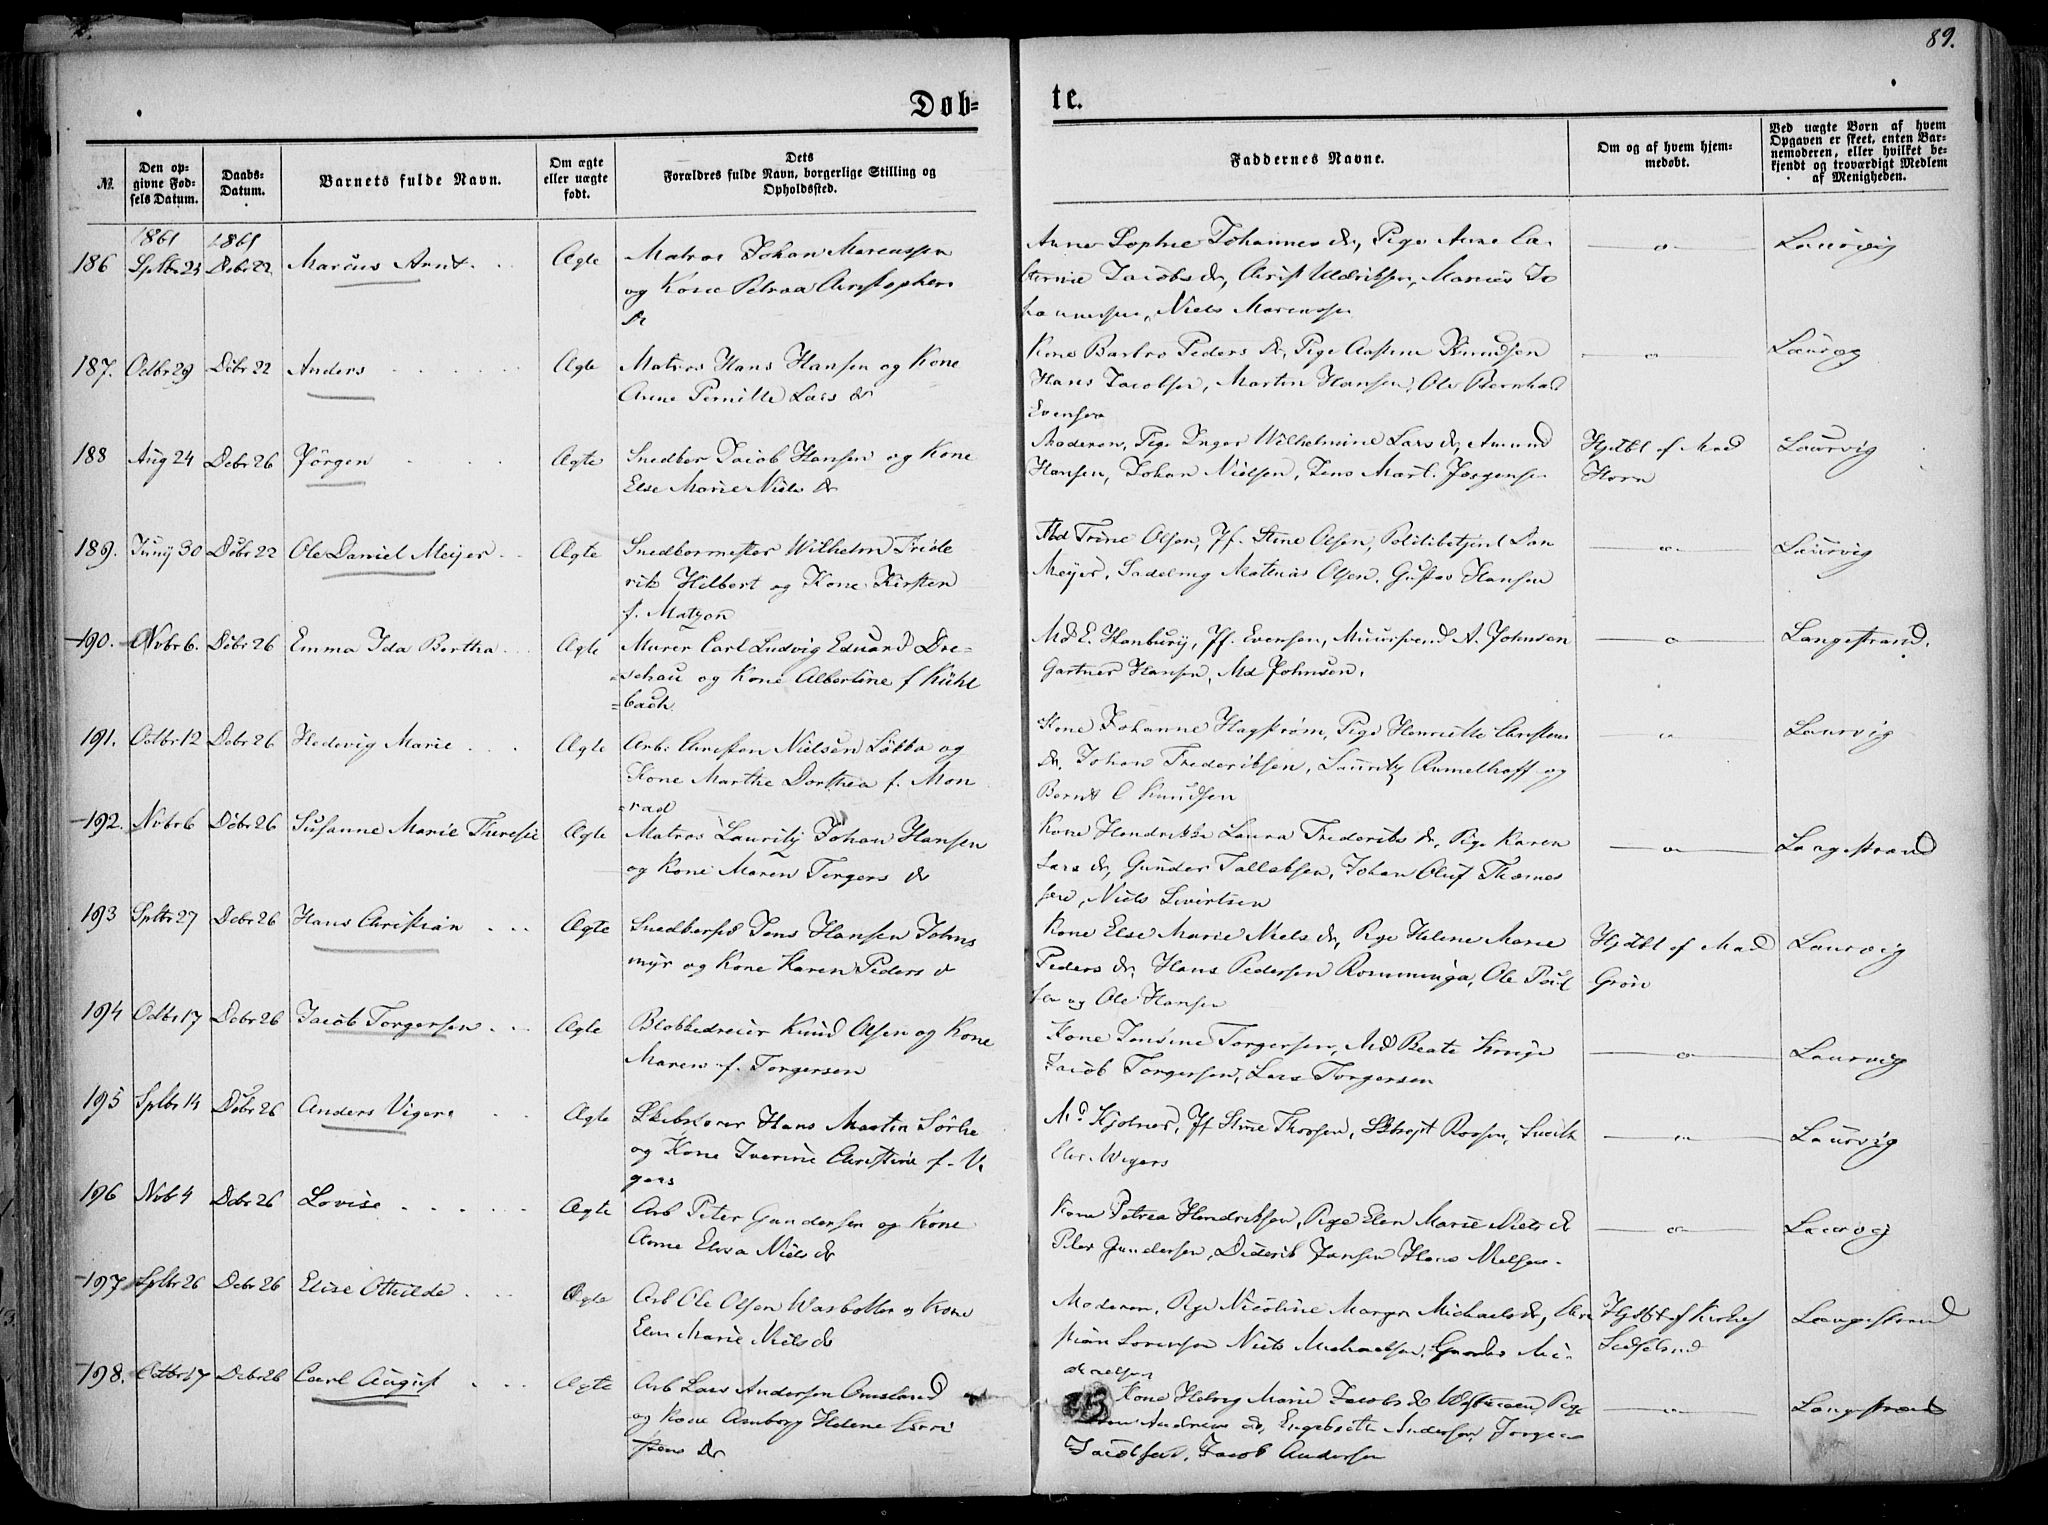 89.
Døb=
te.
№.
Den op=
givne Fød=
sels Datum.
Daabs=
Datum.
Barnets fulde Navn.
Om ægte
eller uægte
født.
Dets
Forældres fulde Navn, borgerlige Stilling og
Opholdssted.
Faddernes Navne.
Om og af hvem hjem=
medøbt.
Ved uægte Børn af hvem
Opgaven er skeet, enten Bar=
nemoderen, eller hvilket be=
kjendt og troværdigt Medlem
af Menigheden.
1861 1861
186 Sptbr 23 Debr 22 Marcus Arnt Ægte Matros Johan Marcussen
og Kone Petraa Christophers
dr
Anne Sophie Johannes dr, Pige Anne Ca-
Jacobs dr, Christ Uldriksen, Marius Jo
hannesen, Niels Marcussen
—o— Laurvig
187. Octbr 29 Debr 22 Anders Ægte Matros Hans Hansen og Kone
Anne Pernille Lars dr
Kone Barbro Peders dr, Pige Knudsen
Hans Jacobsen, Martin Hansen, Ole Bernhard
Evensen
—o— Laurvig
188 Aug 24 Debr 26 Jörgen Ægte Snedker Jacob Hansen og Kone
Else Marie Niels dr
Moderen, Pige Inger Wilhelmine Lars dr, Amund
Hansen, Johan Nielsen, Jens Mart. Jørgensen
Hjdbt af Mad
Horn
Laurvig
189. Juny 30 Debr 22 Ole Daniel Meijer Ægte Snedkermester Wilhelm Fride
rik Hilbert og Kone Kirsten
f. Matzon
Md Trine Olsen, Jf. Stine Olsen, Politibetjent Dan
Meyer, Sadelmg Mathias Olsen, Gustav Hansen
—o— Laurvig
190. Nvbr 6. Debr 26 Emma Ida Bertha Ægte Murer Carl Ludvig Eduard Dre=
=schau og Kone Albertine f Kühl
=bach
Md E. Hanbury, Jf. Evensen, Muursvend A. Johnsen
Gartner Hansen, Md Johnsen.
—o— Langestrand.
191. Octbr 12 Debr 26 Hedevig Marie Ægte Arb. Christen Nielsen Løkka og
Kone Marthe Dorthea f. Mon
=rad
Kone Johanne Hagstrøm, Pige Henriette Christens
dr, Johan Frederiksen, Lauritz Rumelhoff og
Bernt C Knudsen
—o— Laurvig
192. Nvbr 6 Debr 26 Susanne Marie Theresie Ægte Matros Lauritz Johan Hansen
og Kone Maren Torgers dr
Kone Hendrikke Laura Frederiks dr, Pige Karen
Lars dr, Gunder Tallaksen, Johan Oluf Thomes
sen, Niels Sivertsen
—o— Langestrand
193 Sptbr 27 Debr 26 Hans Christian Ægte Snedkersd Jens Hansen Johns
myr og Kone Karen Peders d
Kone Else Marie Niels dr, Pige Helene Marie
Peders dr, Hans Pedersen Romminga, Ole Paul
sen og Ole Hansen
Hjdbt af Mad
Grøn
Laurvig
194 Octbr 17 Debr 26 Jacob Torgersen Ægte Blokkedreier Knud Olsen og Kone
Maren f. Torgersen
Kone Jensine Torgersen, Md Beate
Jacob Torgersen, Lars Torgersen
—o— Laurvig
195 Sptbr 14 Debr 26 Anders Vigers Ægte Skibsfører Hans Martin Sørhe
og Kone Iverine Christine f. Vi
gers
Md Kjølner, Jf Stine Thorsen, Skbsjt Rossen,
Wigers
—o— Laurvig
196 Nvb 4 Debr 26 Lovise Ægte Arb Peter Gundersen og Kone
Anne Elisa Niels dr
Kone Petrea Hendriksen, Pige Elen Marie Niels dr
Peder Gundersen, Diderik Jansen Hans Nielsen.
—o— Laurvig
197 Sptbr 26 Debr 26 Elise Othilde Ægte Arb Ole Olsen Warbotten og Kone
Elen Marie Niels dr
Moderen, Pige Nicoline Margr Michaels dr, Chri
stian Sørensen Niels Michaelsen, Gunder Mi-
chaelsen
Hjdbt af Kirkes
Langestrand
198. Octbr 17 Debr 26 Carl August Ægte Arb Lars Andersen Omsland
og Kone Amborg Helene Lauri
tzens dr
Kone Hedvig Marie Jacobs dr Pige
Andrea dr, Engebreth Andersen, Jørgen
Jacobsen, Jacob Andersen
—o— Langestrand